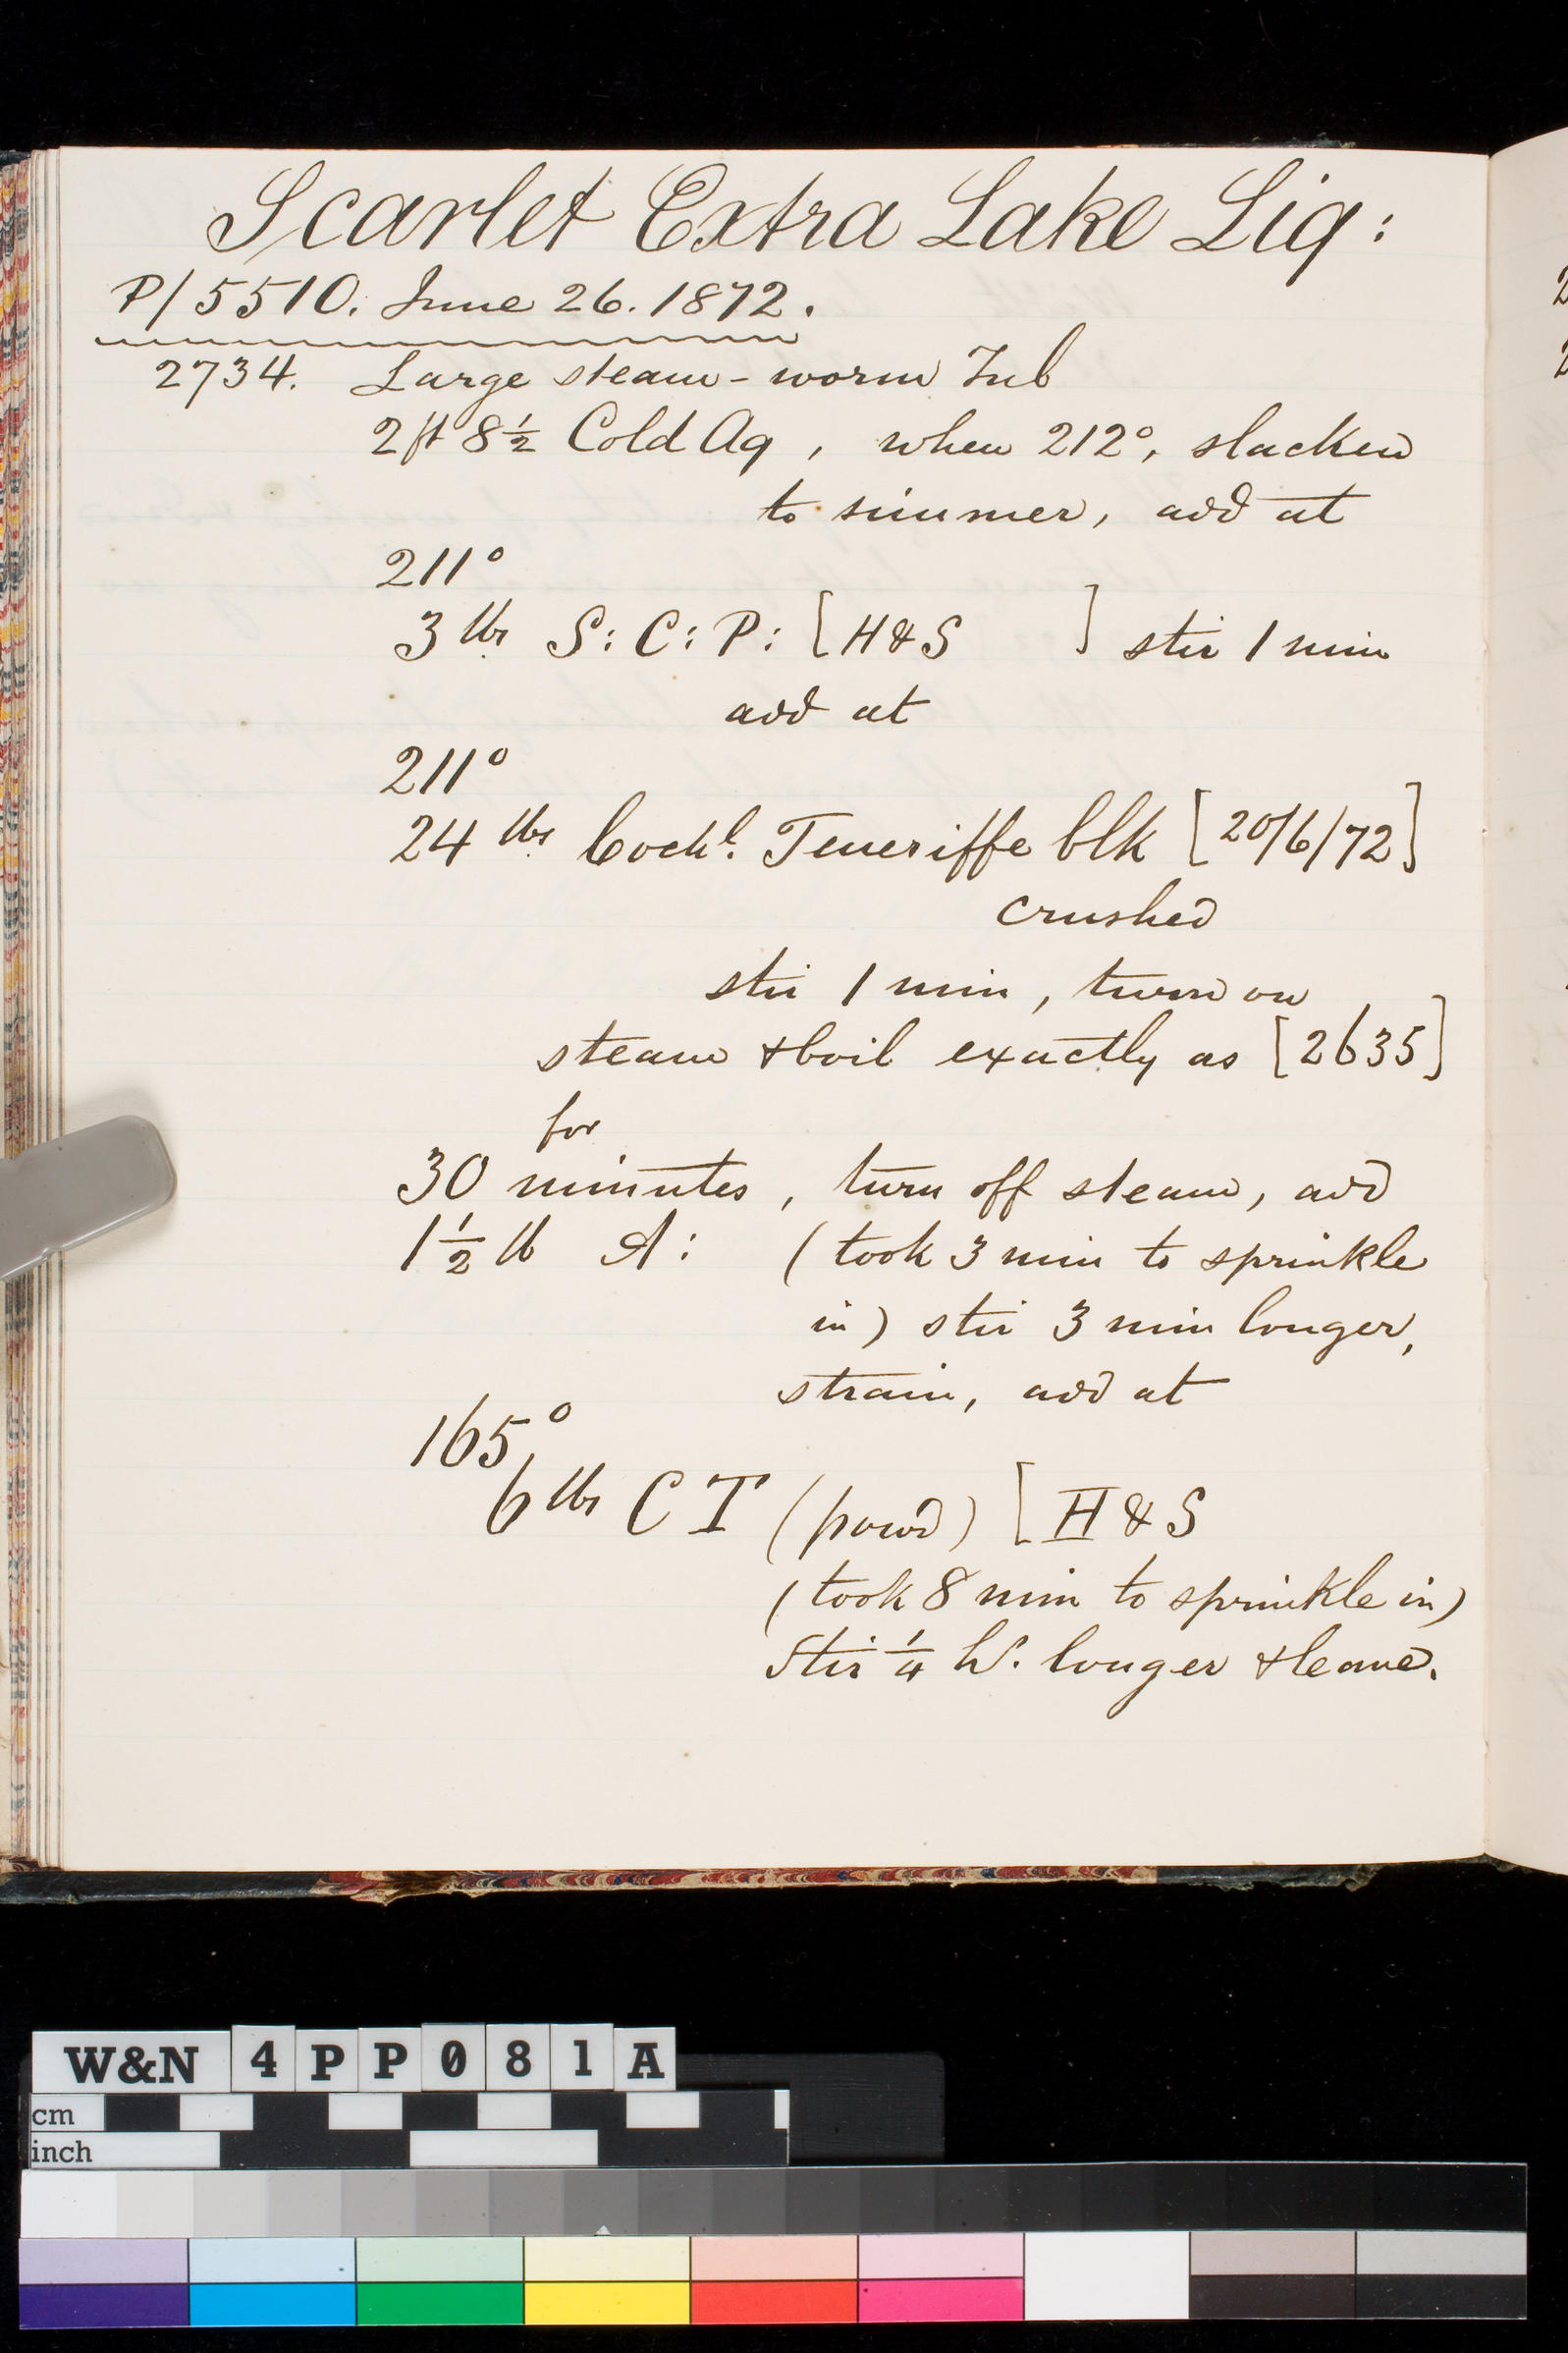 Scarlet Extra Lake Liq:
P/5510. June 26. 1872.
2734. Large steam-worm Tub
2ft 8½ Cold Aq, when 212°, slacken
to simmer, add at
211°
3 lbs S: C: P: [H&S ] stir 1 min
add at
211°
24 lbs Cochl. Teneriffe blk [20/6/72]
crushed
stir 1 min, turn on
steam & boil exactly as [2635]
for
30 minutes, turn off steam, add
1½ lb A: (took 3 min to sprinkle
in) stir 3 min longer,
strain, add at
165°
6 lbs C T (powd) [H&S
(took 8 min to sprinkle in)
Stir ¼ hr. longer & leave.
W&N 4PP081A
cm
inch